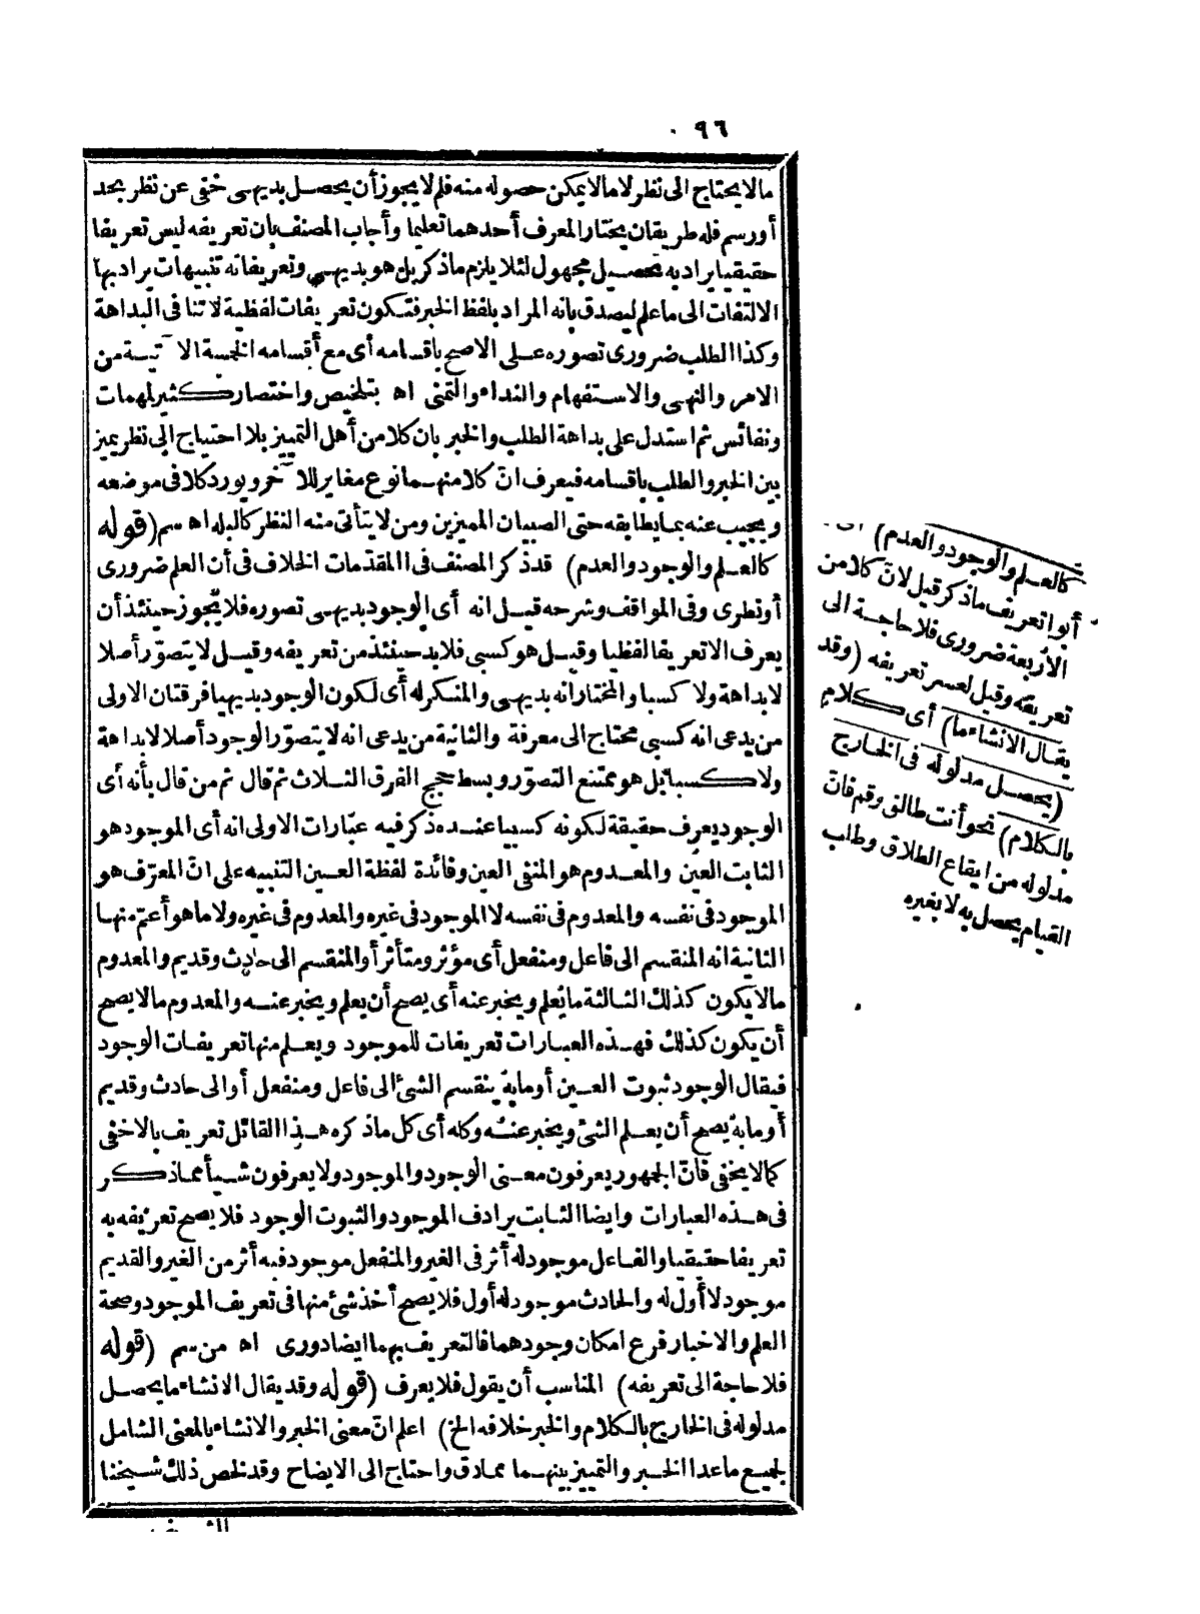 ٩٦
مالا يحتاج الى نظر لا مالا يمكن حصوله منه فلم لا يجوز أن يحصل بديهى خفى عن نظر بحد
أو رسم فله طريقان يختار المعرف أحدهما تعليما وأجاب المصنف بان تعريفه ليس تعريفا
حقيقيا يراد به تحصيل مجهول لئلا يلزم ما ذكر بل هو بديهى وتعريفاته تنبيهات يراد بها
الالتفات الى ما علم ليصدق بانه المراد بلفظ الخبر فتكون تعريفات لفظية لا تنافى البداهة
وكذا الطلب ضرورى تصوره على الاصح باقسامه أى مع أقسامه الخمسة الآتية من
الامر والنهى والاستفهام والنداء والتمنى اه بتلخيص واختصار كثير لمهمات
ونفائس ثم استدل على بداهة الطلب والخبر بان كلا من أهل التمييز بلا احتياج الى نظر يميز
بين الخبر والطلب باقسامه فيعرف انّ كلا منهما نوع مغاير للآخر ويورد كلا فى موضعه
ويجيب عنه بما يطابقه حتى الصبيان المميزين ومن لا يتأتى منه النظر كالبله اه سم (قوله
كالعلم والوجود والعدم) قد ذكر المصنف فى المقدّمات الخلاف فى أن العلم ضرورى
أو نظرى وفى المواقف وشرحه قيل انه أى الوجود بديهى تصوره فلا يجوز حينئذ أن
يعرف الا تعريفا لفظيا وقيل هو كسبى فلا بد حينئذ من تعريفه وقيل لا يتصوّر أصلا
لا بداهة ولا كسبا والمختار انه بديهى والمنكر له أى لكون الوجود بديهيا فرقتان الاولى
من يدعى انه كسبى محتاج الى معرفة والثانية من يدعى انه لا يتصوّر الوجود أصلا لا بداهة
ولا كسبا بل هو ممتنع التصوّر وبسط حجج الفرق الثلاث ثم قال ثم من قال بأنه أى
الوجود يعرف حقيقة لكونه كسبيا عنده ذكر فيه عبارات الاولى انه أى الموجود هو
الثابت العين والمعدوم هو المنفى العين وفائدة لفظة العين التنبيه على انّ المعرّف هو
الموجود فى نفسه والمعدوم فى نفسه لا الموجود فى غيره والمعدوم فى غيره ولا ما هو أعمّ منها
الثانية انه المنقسم الى فاعل ومنفعل أى مؤثر ومتأثر أو المنقسم الى حادث وقديم والمعدوم
مالا يكون كذلك الثالثة ما يعلم ويخبر عنه أى يصح أن يعلم ويخبر عنه والمعدوم مالا يصح
أن يكون كذلك فهذه العبارات تعريفات للموجود ويعلم منها تعريفات الوجود
فيقال الوجود ثبوت العين أو ما به ينقسم الشئ الى فاعل ومنفعل أو الى حادث وقديم
أو ما به يصح أن يعلم الشئ ويخبر عنه وكله أى كل ما ذكره هذا القائل تعريف بالاخفى
كما لا يخفى فانّ الجمهور يعرفون معنى الوجود والموجود ولا يعرفون شيأ مما ذكر
فى هذه العبارات وايضا الثابت يرادف الموجود والثبوت الوجود فلا يصح تعريفه به
تعريفا حقيقيا والفاعل موجود له أثر فى الغير والمنفعل موجود فيه أثر من الغير والقديم
موجود لا أول له والحادث موجود له أول فلا يصح أخذ شئ منها فى تعريف الموجود وصحة
العلم والاخبار فرع امكان وجودهما فالتعريف بهما ايضا دورى اه من سم (قوله
فلا حاجة الى تعريفه) المناسب أن يقول فلا يعرف (قوله وقد يقال الانشاء ما يحصل
مدلوله فى الخارج بالكلام والخبر خلافه الخ) اعلم انّ معنى الخبر والانشاء بالمعنى الشامل
لجميع ما عدا الخبر والتمييز بينهما مما دق واحتاج الى الايضاح وقد لخص ذلك شيخنا
كالعلم والوجود والعدم) أى
أبوا تعريف ما ذكر قيل لانّ كلا من
الأربعة ضرورى فلا حاجة الى
تعريفه وقيل لعسر تعريفه (وقد
يقال الانشاء ما) أى كلام
(يحصل مدلوله فى الخارج
بالكلام) نحو أنت طالق وقم فانّ
مدلوله من ايقاع الطلاق وطلب
القيام يحصل به لا بغيره